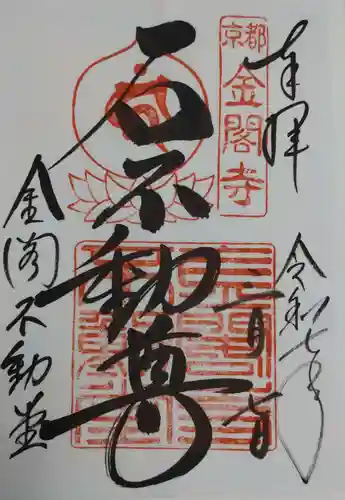 奉拝
令和七年
京都
金閣寺
三月七日
石不動尊
金閣不動堂